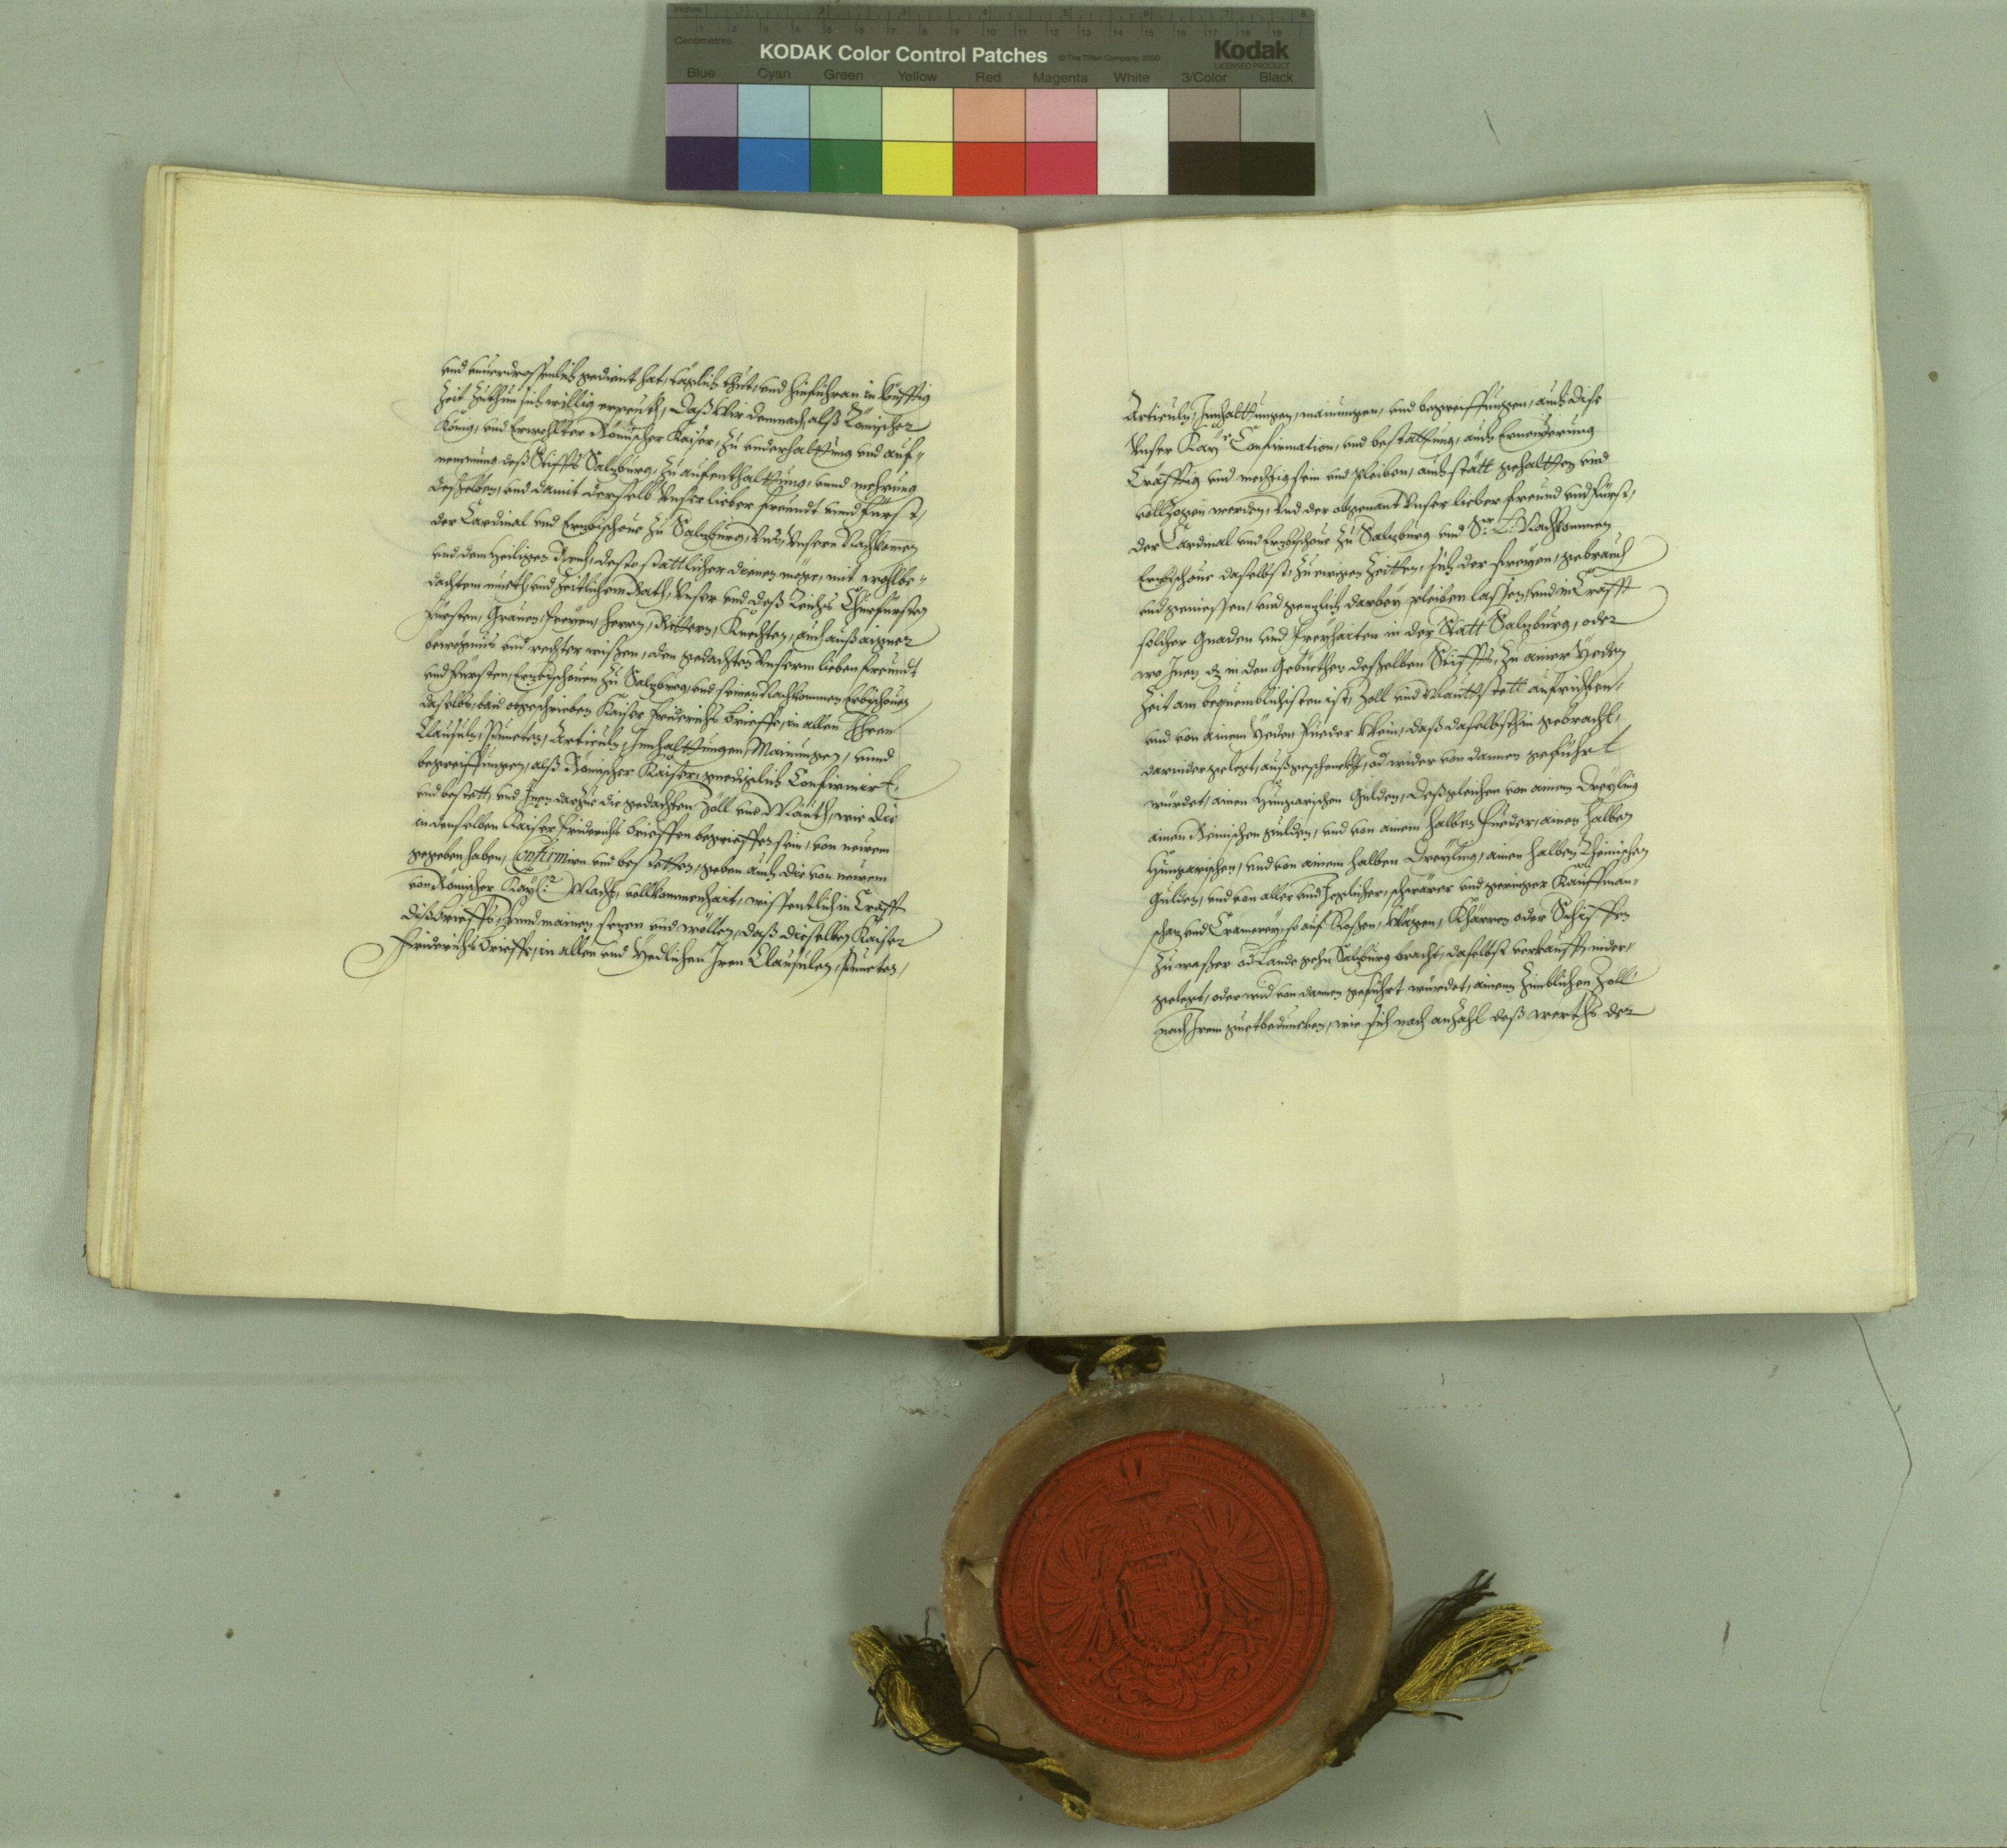 Inches 1 2 3 4 5 6 7 8
Centimetres 1 2 3 4 5 6 7 8 9 10 11 12 13 14 15 16 17 18 19
KODAK Color Control Patches © The Tiffen Company, 2000 Kodak
LICENSED PRODUCT
Blue Cyan Green Yellow Red Magenta White 3/Color Black
vnd vnuerdrossenlich gedient hat, täglich thut, vnd hinführan in künfftig
Zeit zuthun sich willig erpeuth, Daß Wir demnach alß Römischer
König, vnd Erwohlter Römischer Kaiser, zu vnderhalttung vnd auf-
nemmung deß Stiffts Salzburg, zu aufenthalttung, vnnd mehrung
desselben, vnd damit derselb Vnser lieber freundt vnnd Fürst,
der Cardinal vnd Erzbischoue zu Salzburg, Vnß, Vnsern Nachkommen
vnd dem Heiligen Reich, desto stattlicher dienen möge, mit wohlbe-
dachtem mueth, vnd zeitlichem Rath, Vnser vnd deß Reichs Churfürsten
Fürsten, Grauen, Freyen, Herrn, Rittern, Knechten, auch auß aigner
bewegnus vnd rechter wissen, den gedachten Vnserm lieben freundt
vnd Fürsten, Erzbischouen zu Salzburg, vnd seinen Nachkommen Erzbischouen
daselbs, baid obgeschriben Kaiser Friderichs Brieffe, in allen Ihren
Clausuln, Puncten, Articuln, Innhalttungen, Mainungen, vnnd
begreiffungen, alß Römischer Kaiser, gnediglich Confirmirt,
vnd bestett, vnd Inen darzue die gedachten Zöll vnd Mauth, wie die
in denselben Kaiser Friderichs Brieffen begrieffen sein, von neuem
gegeben haben, Confirmirn vnd bestetten, geben auch die von neuem
von Römischer Kay: Macht, vollkommenhait, wissentlich in Crafft
diß Brieffs, Vnnd mainen, sezen vnd wöllen, daß dieselben Kaiser
Friderichs Brieffe, in allen vnd Yedlichen Iren Clausulen, Puncten,
Articuln, Innhalttungen, mainungen, vnd begreiffungen, auch dise
Vnser Kay: Confirmation, vnd bestättung, auch Ernewerung
Cräfftig vnd mechtig sein vnd pleiben, auch stätt gehaltten vnd
vollzogen werden, Vnd der obgenant Vnser lieber freund vnd Fürst,
der Cardinal vnd Erzbischoue zu Salzburg vnd Sr: L: Nachkommen
Erzbischoue daselbst, zu ewigen Zeitten, sich der frewen, gebrauch
vnd geniessen, vnd genzlich darbey pleiben lassen, vnd in Crafft
solcher Gnaden vnd Freyhaiten in der Statt Salzburg, oder
wo Inen dz in den Gebüethen desselben Stiffts, zu ainer Yeden
Zeit am bequemblichisten ist, Zoll vnd Mauttstett aufrichten,
vnd von ainem Yeden Fueder Wein, daß daselbsthin gebracht,
darnider gelegt, außgeschenckht, od wider von dannen geführt
würdet, ainen Hungarischen Gulden, deßgleichen von ainem Dreyling
ainen Reinischen gulden, vnd von ainem halben Fueder, ainen halben
Hungarischen, vnd von ainem halben Dreyling, ainen halben Rheinischen
Gulden, vnd von aller vnd Yeglicher, schwärer vnd geringer Kauffman-
schaz vnd Cramerey, so auf Rossen, Wägen, Khärren oder Schiffen
zu wasser od Lande gehn Salzburg bracht, daselbst verkaufft, nider,
gelegt, oder wid von dannen geführt würdet, ainem zimblichen Zoll
nach Irem guetbeduncken, wie sich nach anzahl deß werths der